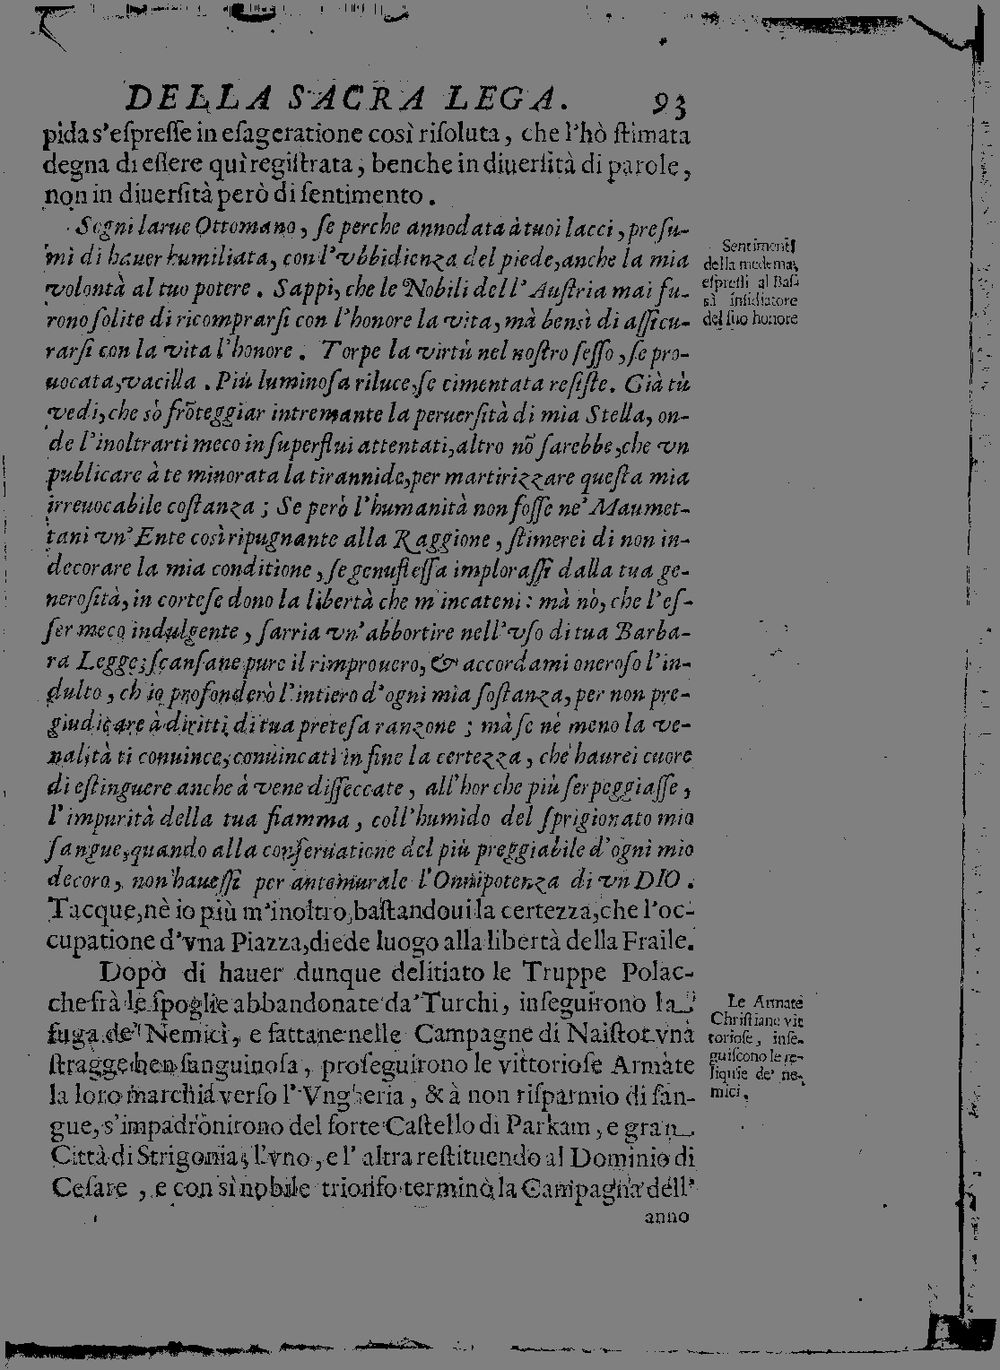 DELLA SACRA LEGA. 93
pida s'espresse in esageratione così risoluta, che l'hò stimata
degna di essere quì registrata, benche in diuersità di parole,
non in diuersità però di sentimento.
Sogni larue Ottomano, se perche annodata à tuoi lacci, presu-
mi di hauer humiliata, con l'vbbidienza del piede, anche la mia
volontà al tuo potere. Sappi, che le Nobili dell'Austria mai fu-
rono solite di ricomprarsi con l'honore la vita, mà bensì di assicu-
rarsi con la vita l'honore. Torpe la virtù nel nostro sesso, se pro-
uocata, vacilla. Più luminosa riluce, se cimentata resiste. Già tù
vedi, che sò frõteggiar intremante la peruersità di mia Stella, on-
de l'inoltrarti meco in superflui attentati, altro nõ sarebbe, che vn
publicare à te minorata la tirannide, per martirizzare questa mia
irreuocabile costanza; Se però l'humanità non fosse ne' Maumet-
tani vn' Ente così ripugnante alla Raggione, stimerei di non in-
decorare la mia conditione, se genuflessa implorassi dalla tua ge-
nerosità, in cortese dono la libertà che m'incateni: mà nò, che l'es-
ser meco indulgente, sarria vn' abbortire nell'vso di tua Barba-
ra Legge; scansane pure il rimprouero, & accordami oneroso l'in-
dulto, ch io profonderò l'intiero d'ogni mia sostanza, per non pre-
giudicare à diritti di tua pretesa ranzone; mà se nè meno la ve-
nalità ti conuince, conuincati in fine la certezza, che haurei cuore
di estinguere anche à vene disseccate, all'hor che più serpeggiasse,
l'impurità della tua fiamma, coll'humido del sprigionato mio
sangue, quando alla conseruatione del più preggiabile d'ogni mio
decoro, non hauessi per antemurale l'Onnipotenza di vn DIO.
Tacque, nè io più m'inoltro, bastandoui la certezza, che l'oc-
cupatione d'vna Piazza, diede luogo alla libertà della Fraile.
Dopò di hauer dunque delitiato le Truppe Polac-
che frà le spoglie abbandonate da' Turchi, inseguirono la
fuga de' Nemici, e fattane nelle Campagne di Naistot vna
stragge ben sanguinosa, proseguirono le vittoriose Armate
la loro marchia verso l'Vngheria, & à non risparmio di san-
gue, s'impadronirono del forte Castello di Parkam, e gran
Città di Strigonia, l'vno, e l'altra restituendo al Dominio di
Cesare, e con sì nobile trionfo terminò la Campagna dell'
anno
Sentimenti
della medema,
espressi al Bas-
sà insidiatore
del suo honore
Le Armate
Christiane vit
toriose, inse-
guiscono le re-
liquie de' ne-
mici.